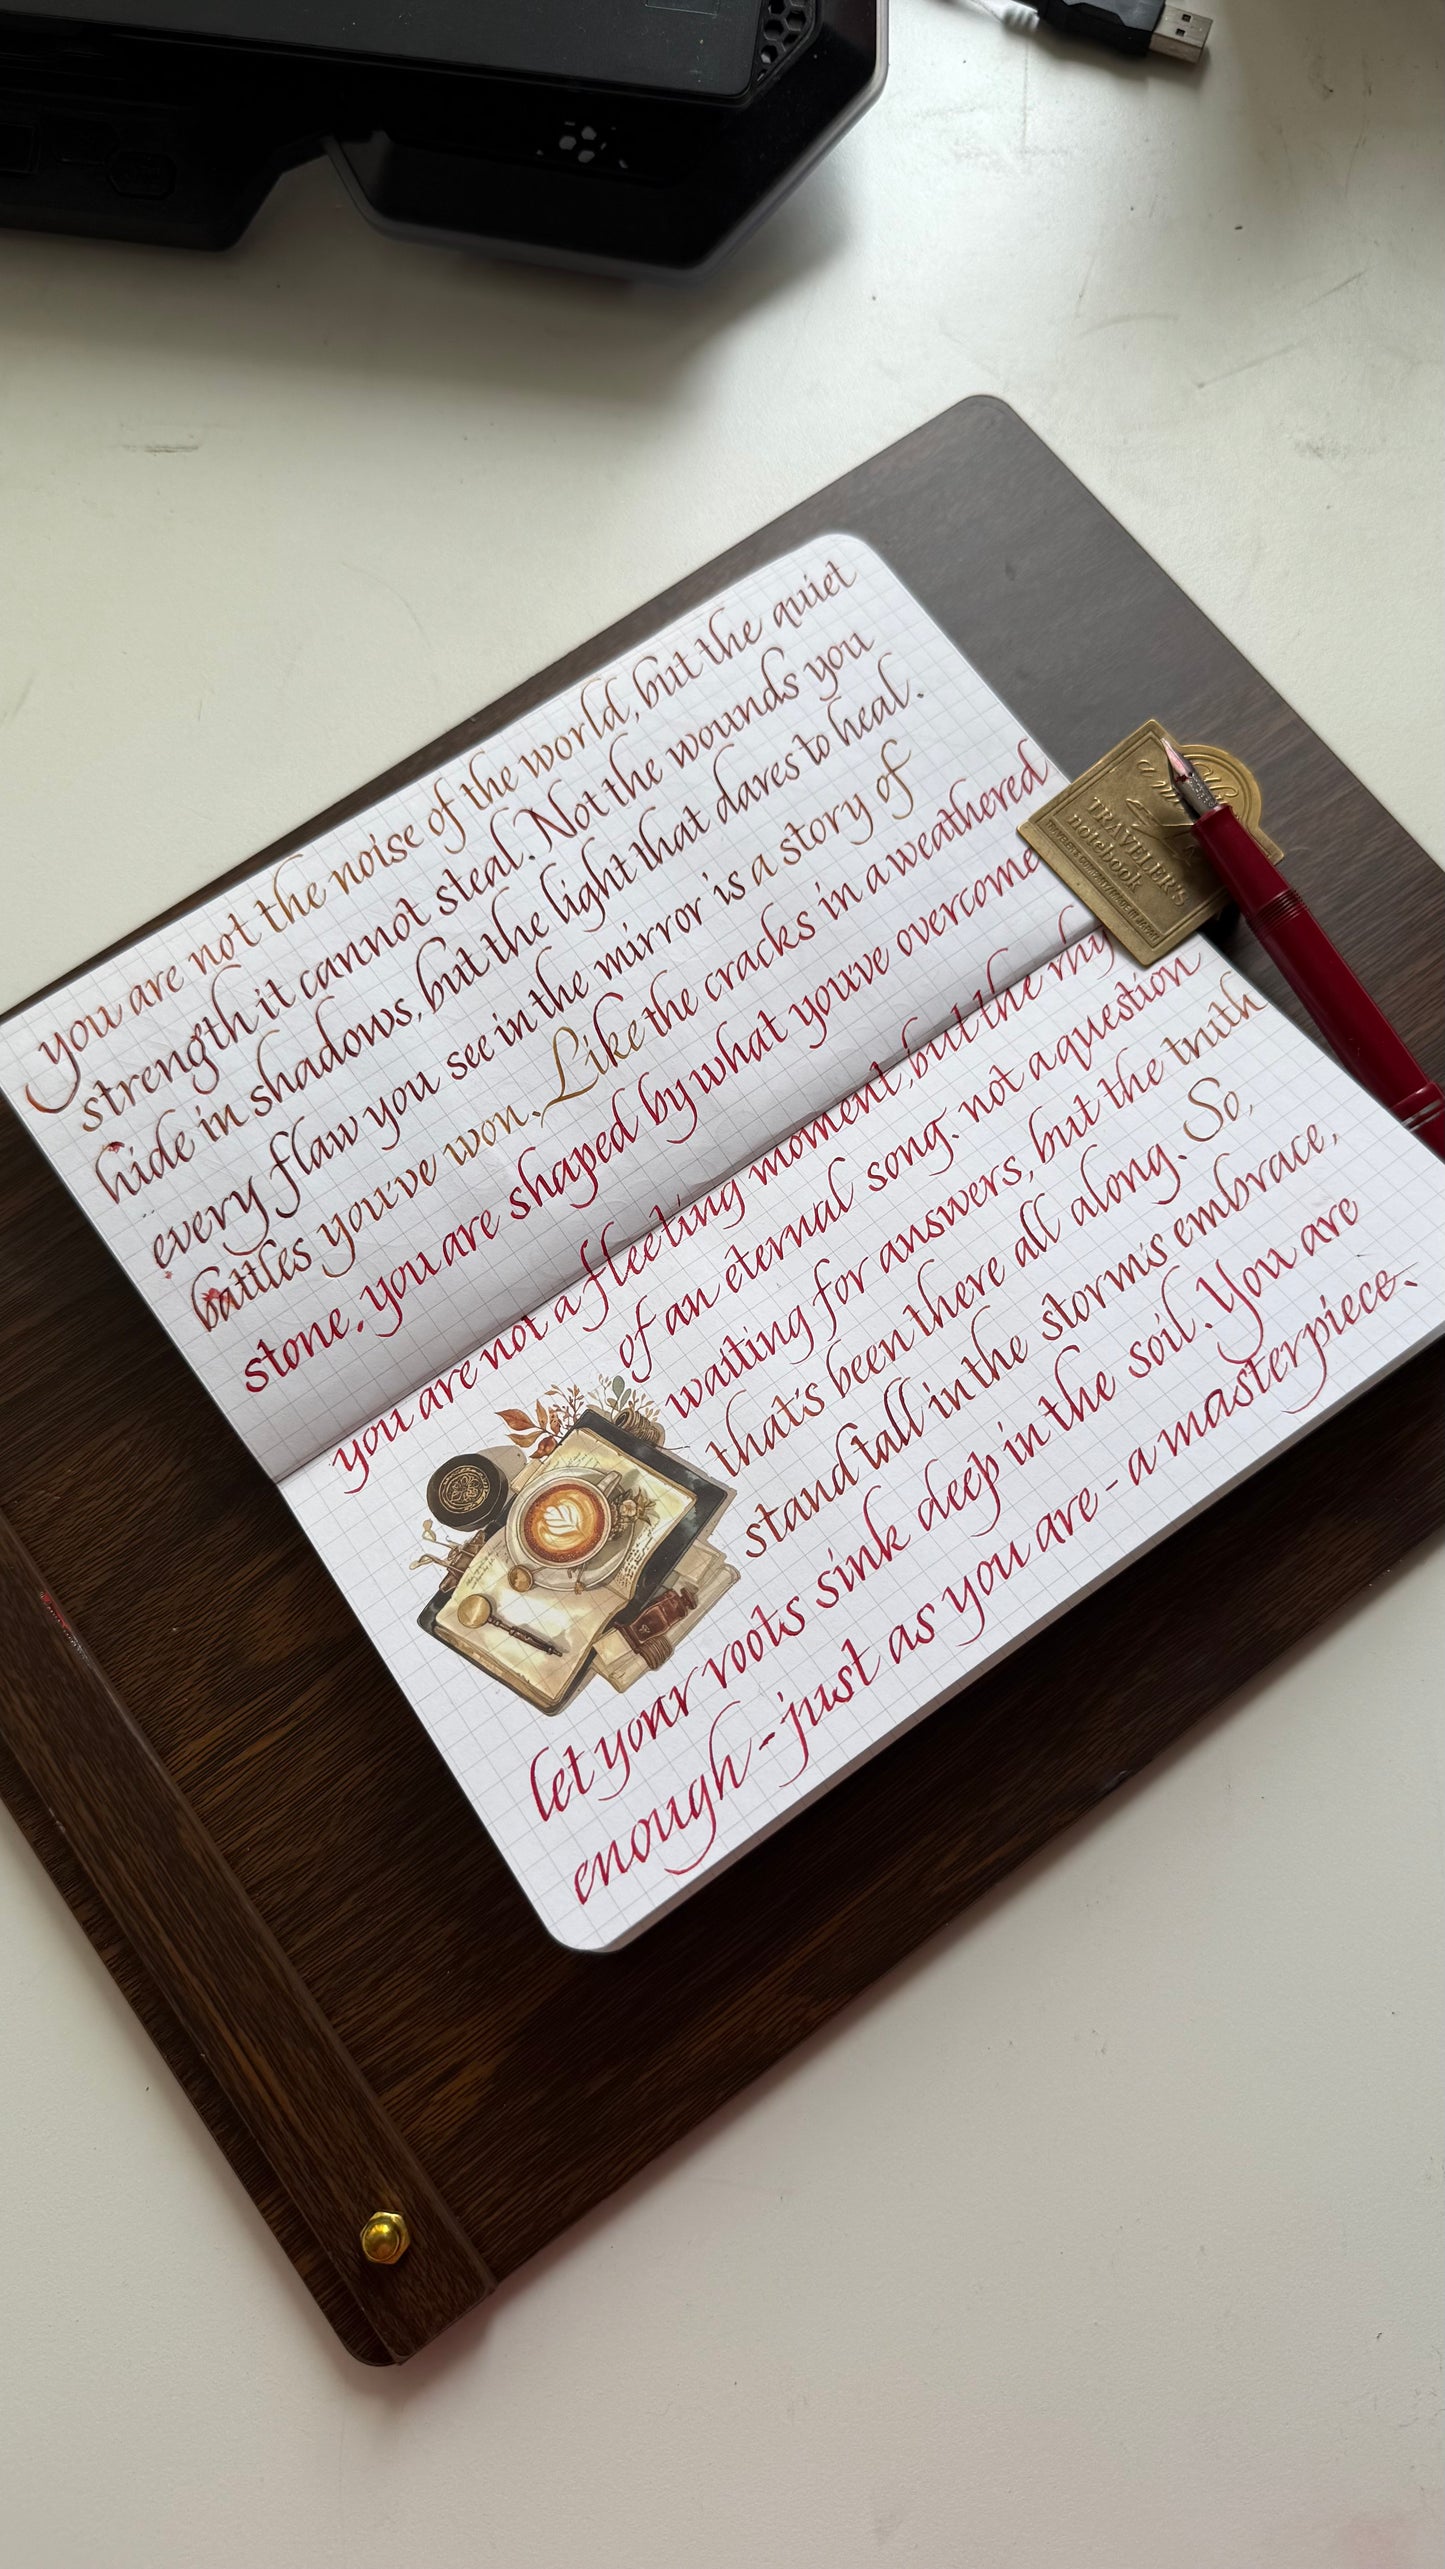 you are not the noise of the world, but the quiet
strength it cannot steal. Not the wounds you
hide in shadows, but the light that dares to heal.
every flaw you see in the mirror is a story of
battles you've won. Like the cracks in a weathered
stone. you are shaped by what you've overcome
you are not a fleeting moment, but the rhy
of an eternal song. not a question
waiting for answers, but the truth
that's been there all along. So,
stand tall in the storm's embrace,
let your roots sink deep in the soil. You are
enough - just as you are - a masterpiece.
TRAVELER'S
notebook